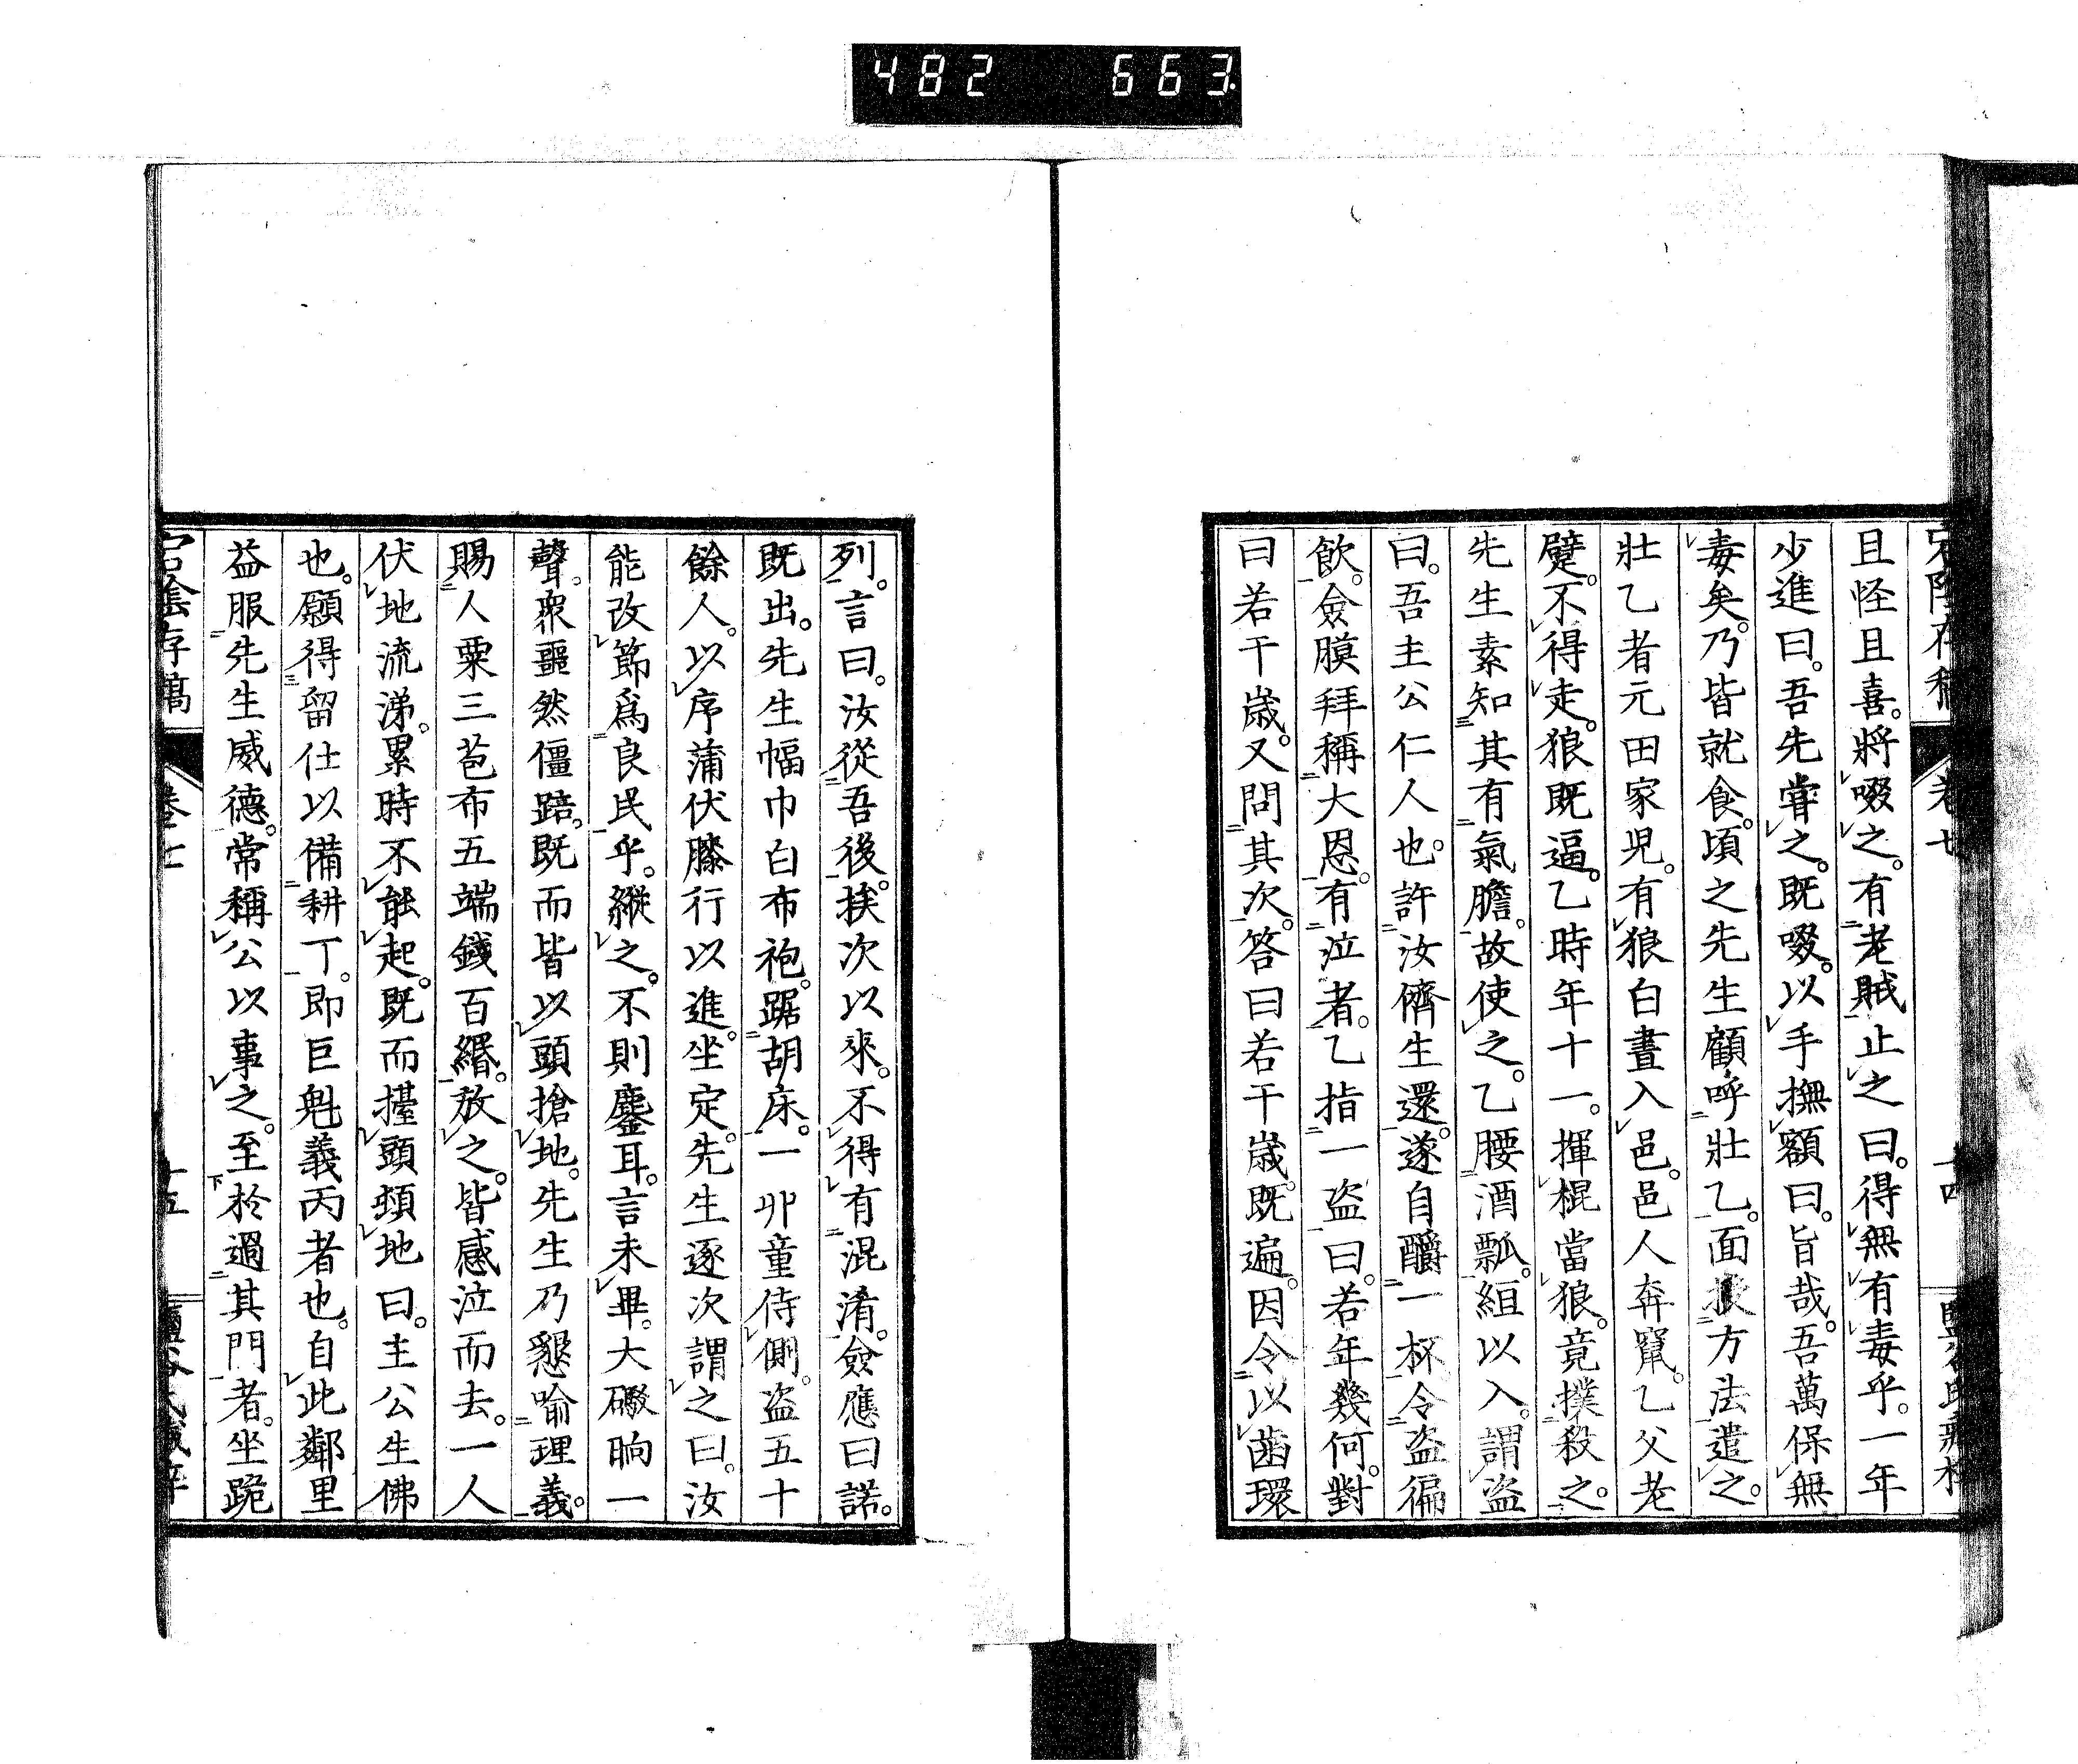 482 663
且怪且喜。將啜之。有老賊止之曰。得無有毒乎。一年
少進曰。吾先嘗之。既啜。以手撫額曰。旨哉。吾萬保無
毒矣。乃皆就食。頃之先生顧呼壯乙。面授方法遣之。
壯乙者元田家児。有狼白晝入邑。邑人奔竄。乙父老
躄。不得走。狼既逼。乙時年十一。揮棍當狼。竟撲殺之。
先生素知其有氣膽。故使之。乙腰酒瓢。組以入。謂盗
曰。吾主公仁人也。許汝儕生還。遂自釂一杯。令盗徧
飲。僉膜拜稱大恩。有泣者。乙指一盗曰。若年幾何。對
曰若干歳。又問其次。答曰若干歳。既遍。因令以齒環
列。言曰。汝從吾後。挨次以來。不得有混淆。僉應曰諾。
既出。先生幅巾白布袍。踞胡床。一丱童侍側。盗五十
餘人。以序蒲伏膝行以進。坐定。先生逐次謂之曰。汝
能改節爲良民乎。縱之。不則鏖耳。言未畢。大礮晌一
聲。衆噩然僵踣。既而皆以頭搶地。先生乃懇喻理義。
賜人粟三苞布五端錢百緡。放之。皆感泣而去。一人
伏地流涕。累時不能起。既而擡頭頓地曰。主公生佛
也。願得留仕以備耕丁。即巨魁義丙者也。自此鄰里
益服先生威德。常稱公以事之。至於過其門者。坐跪
卷七 十五